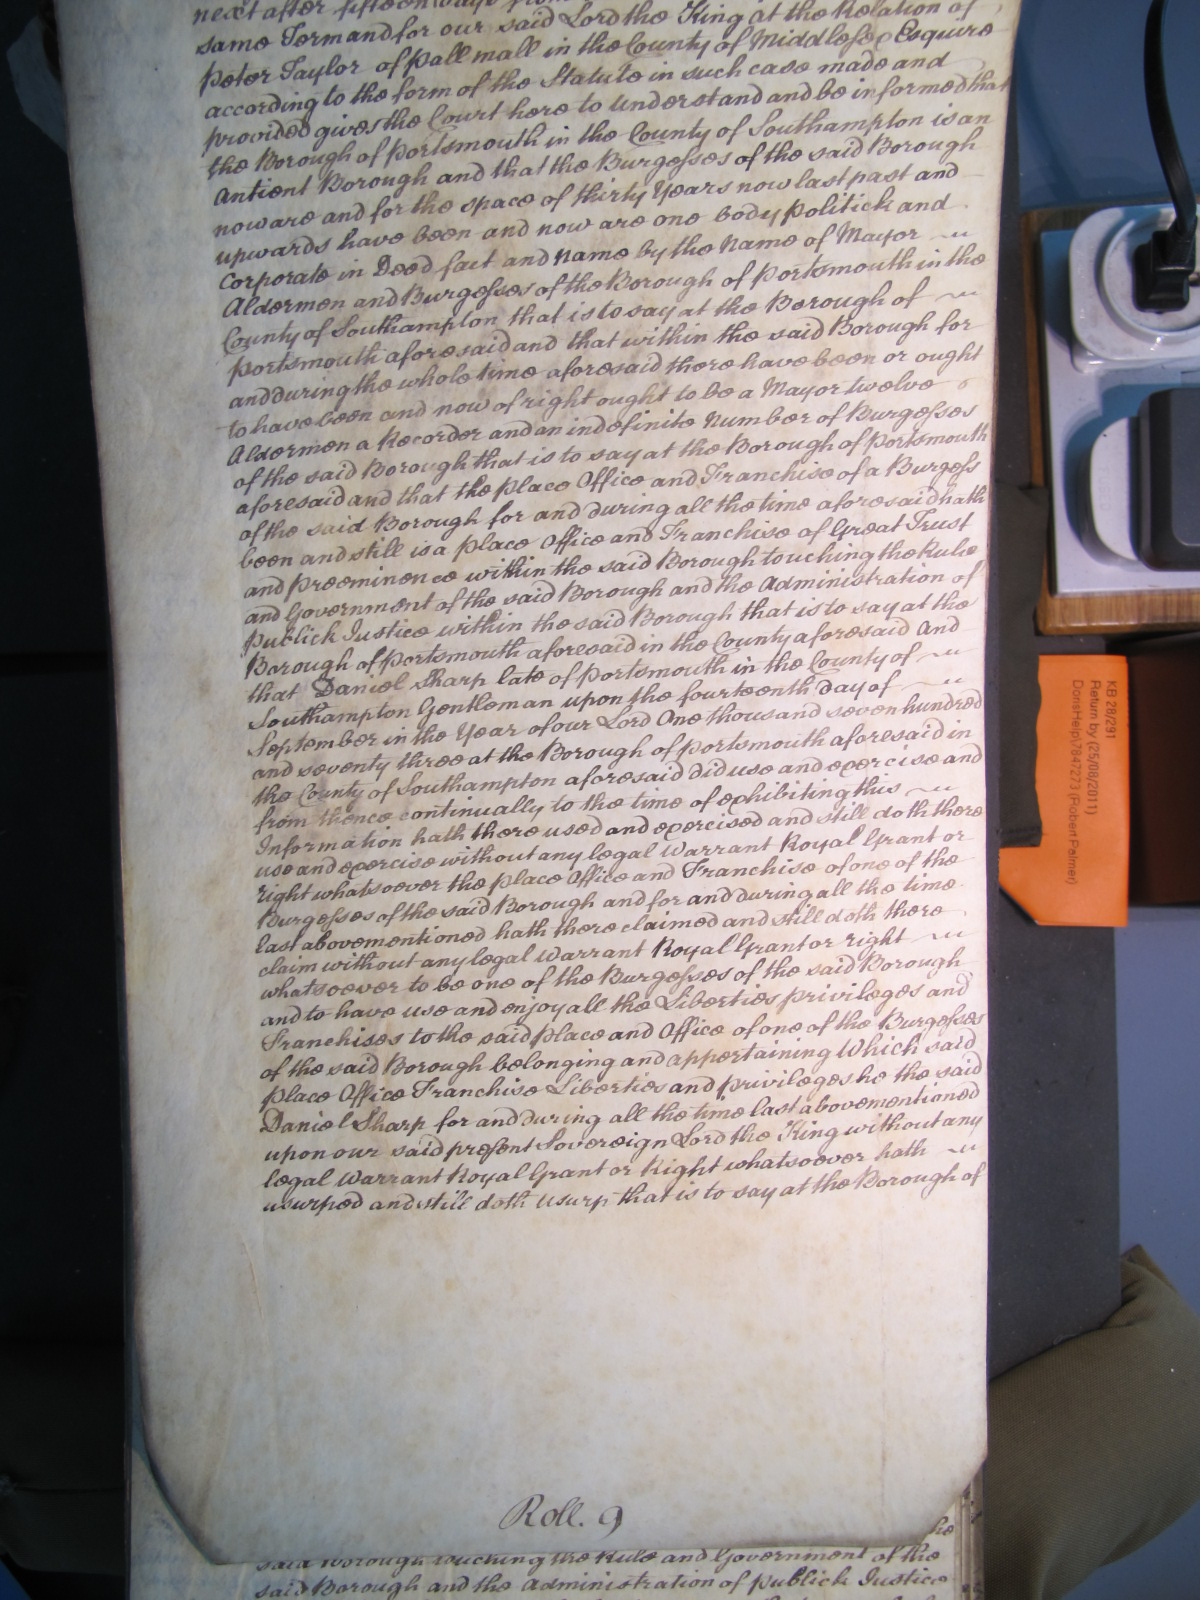 next after fifteen days from
same Term and for our said Lord the King at the Relation of
Peter Taylor of Pall mall in the County of Middlesex Esquire
according to the form of the Statute in such case made and
provided gives the Court here to understand and be informed that
the Borough of Portsmouth in the County of Southampton is an
Antient Borough and that the Burgesses of the said Borough
now are and for the space of thirty Years now last past and
upwards have been and now are one body Politick and
Corporate in Deed fact and Name by the Name of Mayor
Aldermen and Burgesses of the Borough of Portsmouth in the
County of Southampton that is to say at the Borough of
Portsmouth aforesaid and that within the said Borough for
and during the whole time aforesaid there have been or ought
to have been and now of right ought to be a Mayor twelve
Aldermen a Recorder and an indefinite Number of Burgesses
of the said Borough that is to say at the Borough of Portsmouth
aforesaid and that the Place Office and Franchise of a Burgess
of the said Borough for and during all the time aforesaid hath
been and still is a Place Office and Franchise of Great Trust
and Preeminence within the said Borough touching the Rule
and Government of the said Borough and the Administration of
Publick Justice within the said Borough that is to say at the
Borough of Portsmouth aforesaid in the County aforesaid And
that Daniel Sharp late of Portsmouth in the County of
Southampton Gentleman upon the fourteenth day of
September in the Year of our Lord One thousand seven hundred
and seventy three at the Borough of Portsmouth aforesaid in
the County of Southampton aforesaid did use and exercise and
from thence continually to the time of exhibiting this
Information hath there used and exercised and still doth there
use and exercise without any legal Warrant Royal Grant or
right whatsoever the Place Office and Franchise of one of the
Burgesses of the said Borough and for and during all the time
last abovementioned hath there claimed and still doth there
claim without any legal Warrant Royal Grant or right
whatsoever to be one of the Burgesses of the said Borough
and to have use and enjoy all the Liberties privileges and
Franchises to the said Place and Office of one of the Burgesses
of the said Borough belonging and appertaining Which said
Place Office Franchise Liberties and privileges he the said
Daniel Sharp for and during all the time last abovementioned
upon our said present Sovereign Lord the King without any
legal Warrant Royal Grant or Right whatsoever hath
usurped and still doth usurp that is to say at the Borough of
Roll. 9
said Borough touching the Rule and Government of the
said Borough and the Administration of Publick Justice
KB 28/291
Return by (25/08/2011)
DorisHelp\7847273 (Robert Palmer)